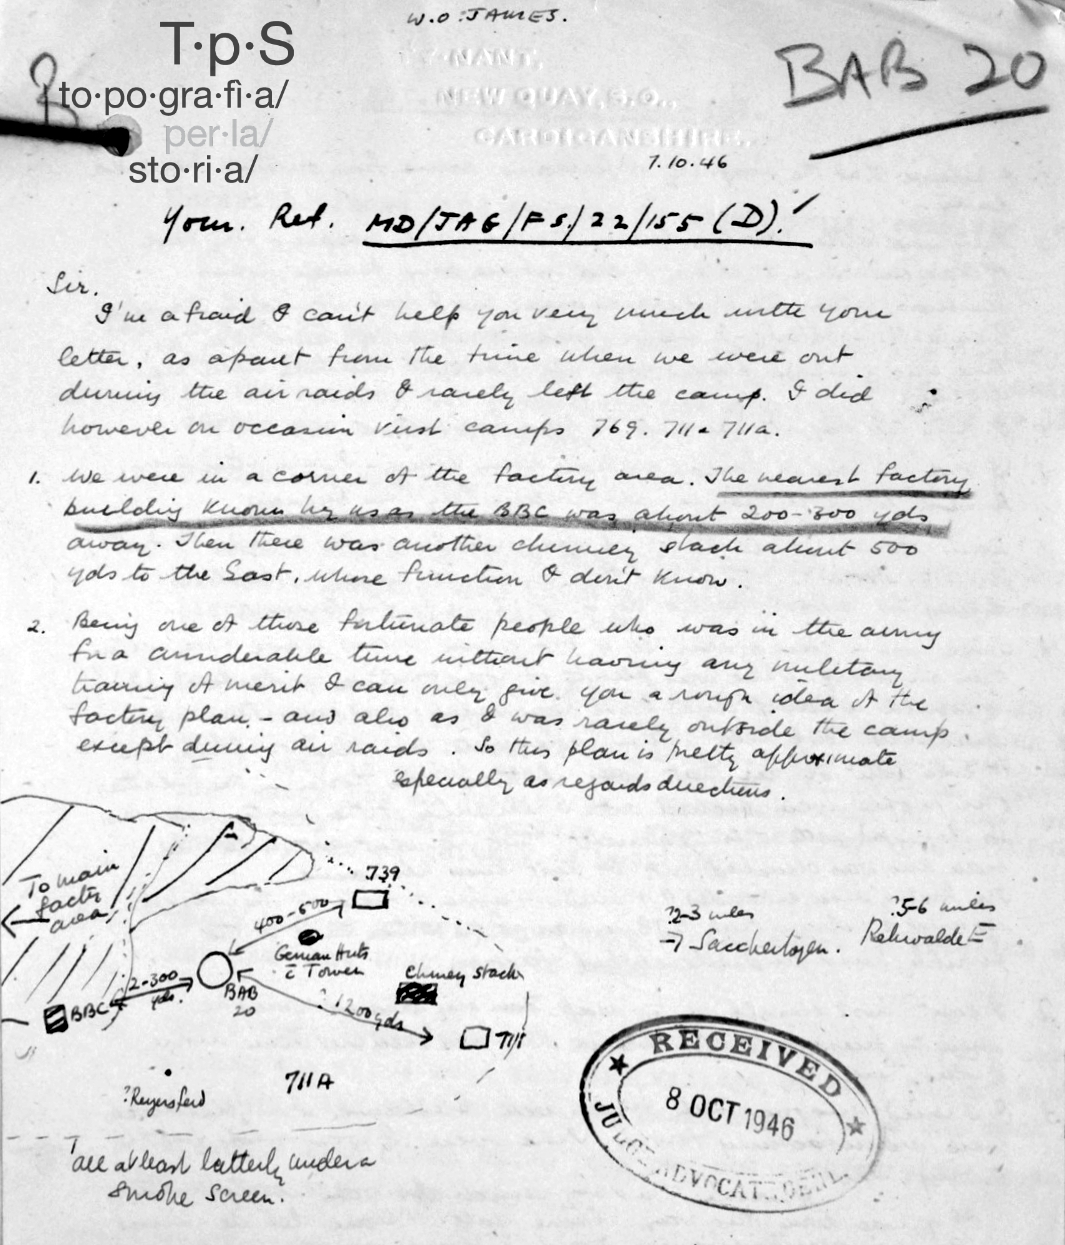 W.O. JAMES.
T·p·S
to·po·gra·fi·a/
per·la/
sto·ri·a/
BAB 20
TY-NANT,
NEW QUAY, S.O.,
CARDIGANSHIRE.
7.10.46
Your. Ref. MD/JAG/FS/22/155 (D).
Sir.
I'm afraid I can't help you very much with your
letter, as apart from the time when we were out
during the air raids I rarely left the camp. I did
however on occasion visit camps 769. 711 - 711a.
1. We were in a corner of the factory area. The nearest factory
building known by us as the BBC was about 200-300 yds
away. Then there was another chimney stack about 500
yds to the East, whose function I don't know.
2. Being one of those fortunate people who was in the army
for a considerable time without having any military
training of merit I can only give you a rough idea of the
factory plan - and also as I was rarely outside the camp
except during air raids. So this plan is pretty approximate
especially as regards directions.
To main
factory
area
739
400-600
German Huts
c Tower
Chimney Stack
2-300
yds.
BBC
BAB
20
? 1200 yds
711
711A
?2-3 miles
→ Saccherhogen.
?5-6 miles
Rehwalde E
all at least latterly under a
smoke screen.
RECEIVED
8 OCT 1946
JUDGE ADVOCATE GENERAL